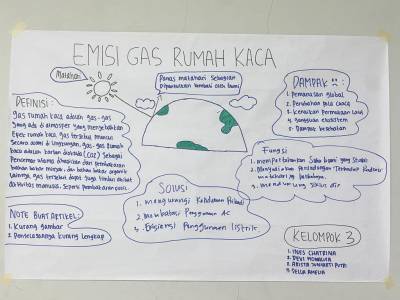 EMISI GAS RUMAH KACA
Matahari
Panas matahari sebagian
dipantulkan kembali oleh bumi
DAMPAK
1. Pemanasan global
2. Perubahan pola cuaca
3. Kenaikan Permukaan laut
4. gangguan ekosistem
5. Dampak kesehatan
DEFINISI:
Gas rumah kaca adalah gas-gas
yang ada di atmosfer yang menyebabkan
Efek rumah kaca gas tersebut muncul
Secara alami di lingkungan, gas-gas rumah
kaca adalah karbon dioksida (CO2) sebagai
Pencemar utama dihasilkan dari pembakaran
bahan bakar minyak, dan bahan bakar organik
lainnya. gas tersebut dapat juga timbul akibat
aktivitas manusia, seperti pembakaran
Fungsi
1. mempertahankan suhu bumi yang stabil
2. Menyediakan Perlindungan Terhadap Radiasi
matahari yg berbahaya.
3. mendukung siklus air
SOLUSI
1. mengurangi Kendaraan Pribadi
2. Membatasi Penggunaan AC
3. Efisiensi Penggunaan listrik
NOTE BUAT ARTIKEL:
1. Kurang gambar
2. Penjelasannya Kurang lengkap
KELOMPOK 3
1. INES CHATRINA
2. DEVI
3. ARISTA PUTRI
4. DELLA AMELIA